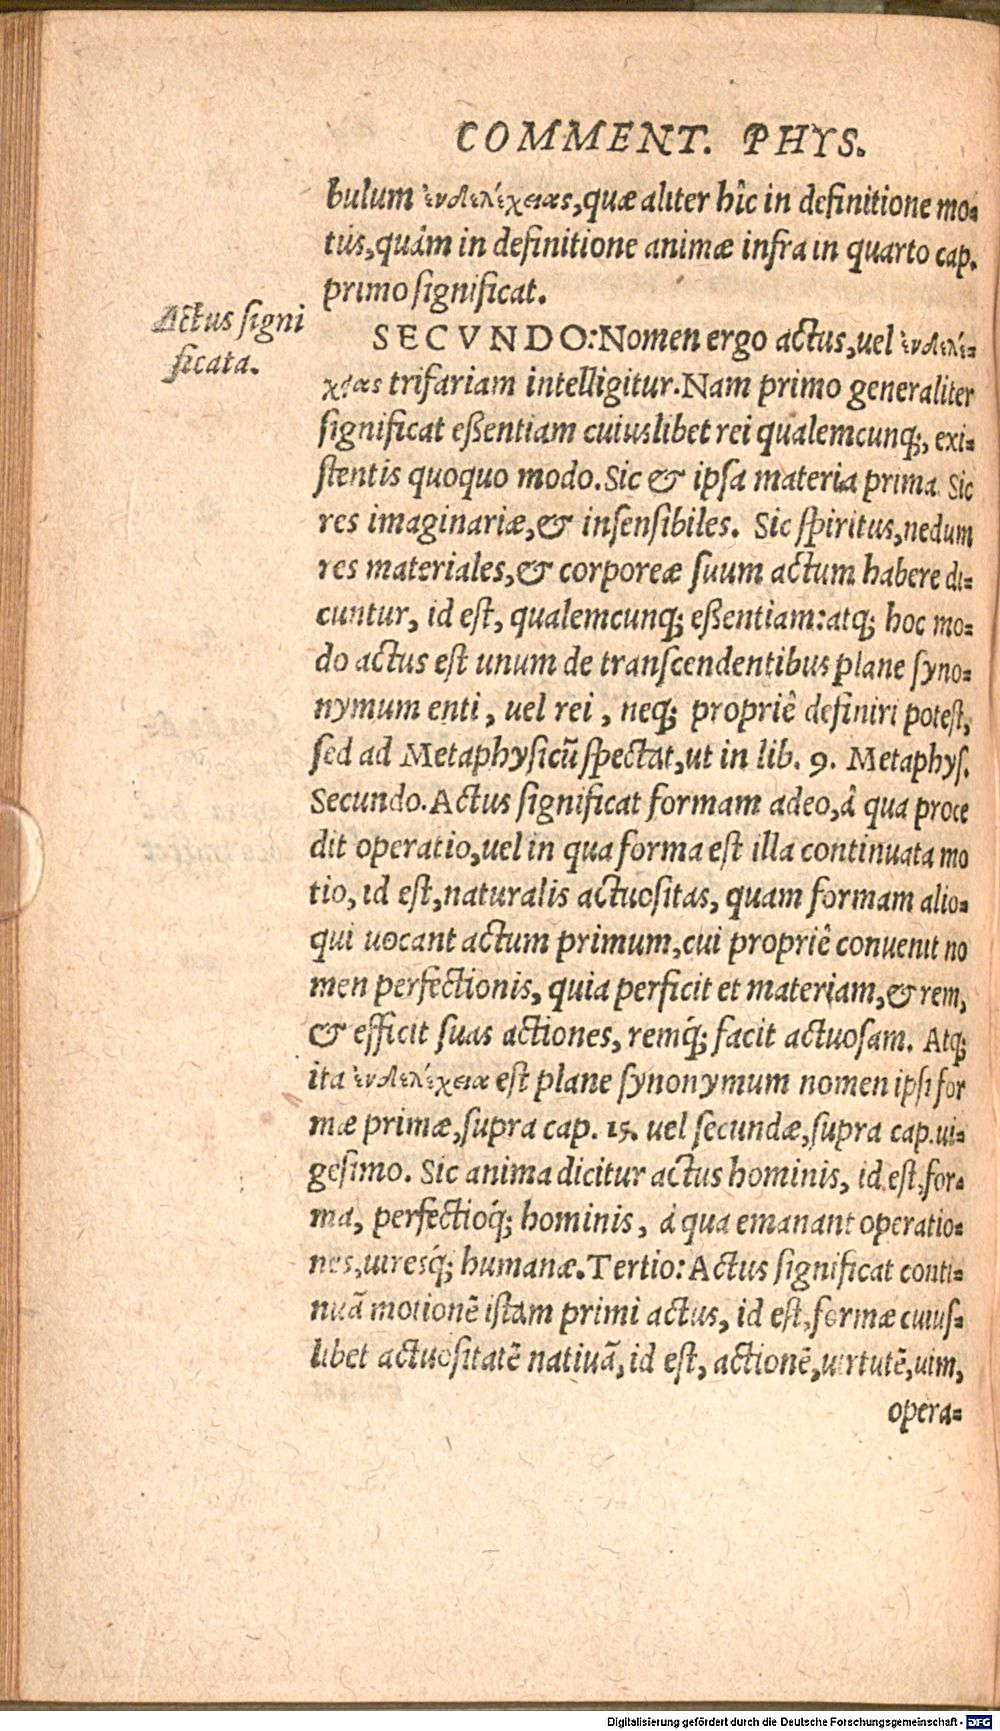 COMMENT. PHYS.
bulum ἐνδελέχειας, quæ aliter hîc in definitione mo=
tûs, quàm in definitione animæ infra in quarto cap.
primo significat.
Actus signi
ficata.
SECVNDO: Nomen ergo actus, uel ἐνδελέ=
χειας trifariam intelligitur. Nam primo generaliter
significat eßentiam cuiuslibet rei qualemcunq;, exi=
stentis quoquo modo. Sic & ipsa materia prima. Sic
res imaginariæ, & insensibiles. Sic spiritus, nedum
res materiales, & corporeæ suum actum habere di=
cuntur, id est, qualemcunq; eßentiam: atq; hoc mo=
do actus est unum de transcendentibus plane syno=
nymum enti, uel rei, neq; propriè definiri potest,
sed ad Metaphysicũ spectat, ut in lib. 9. Metaphys.
Secundo. Actus significat formam adeo, à qua proce
dit operatio, uel in qua forma est illa continuata mo
tio, id est, naturalis actuositas, quam formam alio=
qui uocant actum primum, cui propriè conuenit no
men perfectionis, quia perficit et materiam, & rem,
& efficit suas actiones, remq́; facit actuosam. Atq;
ita ἐνδελέχεια est plane synonymum nomen ipsi for
mæ primæ, supra cap. 15. uel secundæ, supra cap. ui=
gesimo. Sic anima dicitur actus hominis, id est, for=
ma, perfectioq́; hominis, à qua emanant operatio=
nes, uiresq́; humanæ. Tertio: Actus significat conti=
nuã motionẽ istam primi actus, id est, formæ cuius=
libet actuositatẽ natiuã, id est, actionẽ, uirtutẽ, uim,
opera=
Digitalisierung gefördert durch die Deutsche Forschungsgemeinschaft - DFG